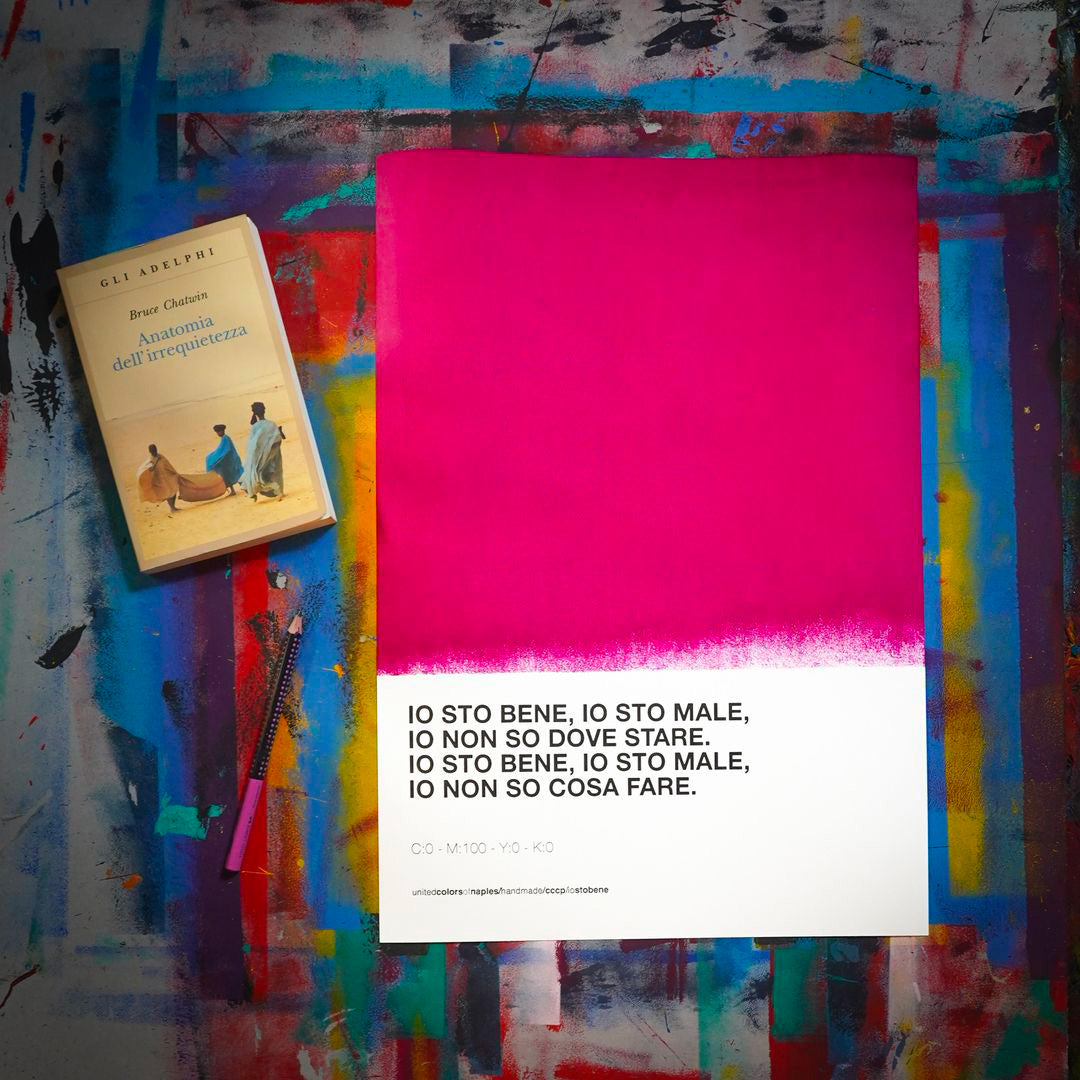 GLI ADELPHI
Bruce Chatwin
Anatomia
dell'irrequietezza
IO STO BENE, IO STO MALE,
IO NON SO DOVE STARE.
IO STO BENE, IO STO MALE,
IO NON SO COSA FARE.
C:0 - M:100 - Y:0 - K:0
unitedcolorsofnaples/handmade/cccp/iostobene